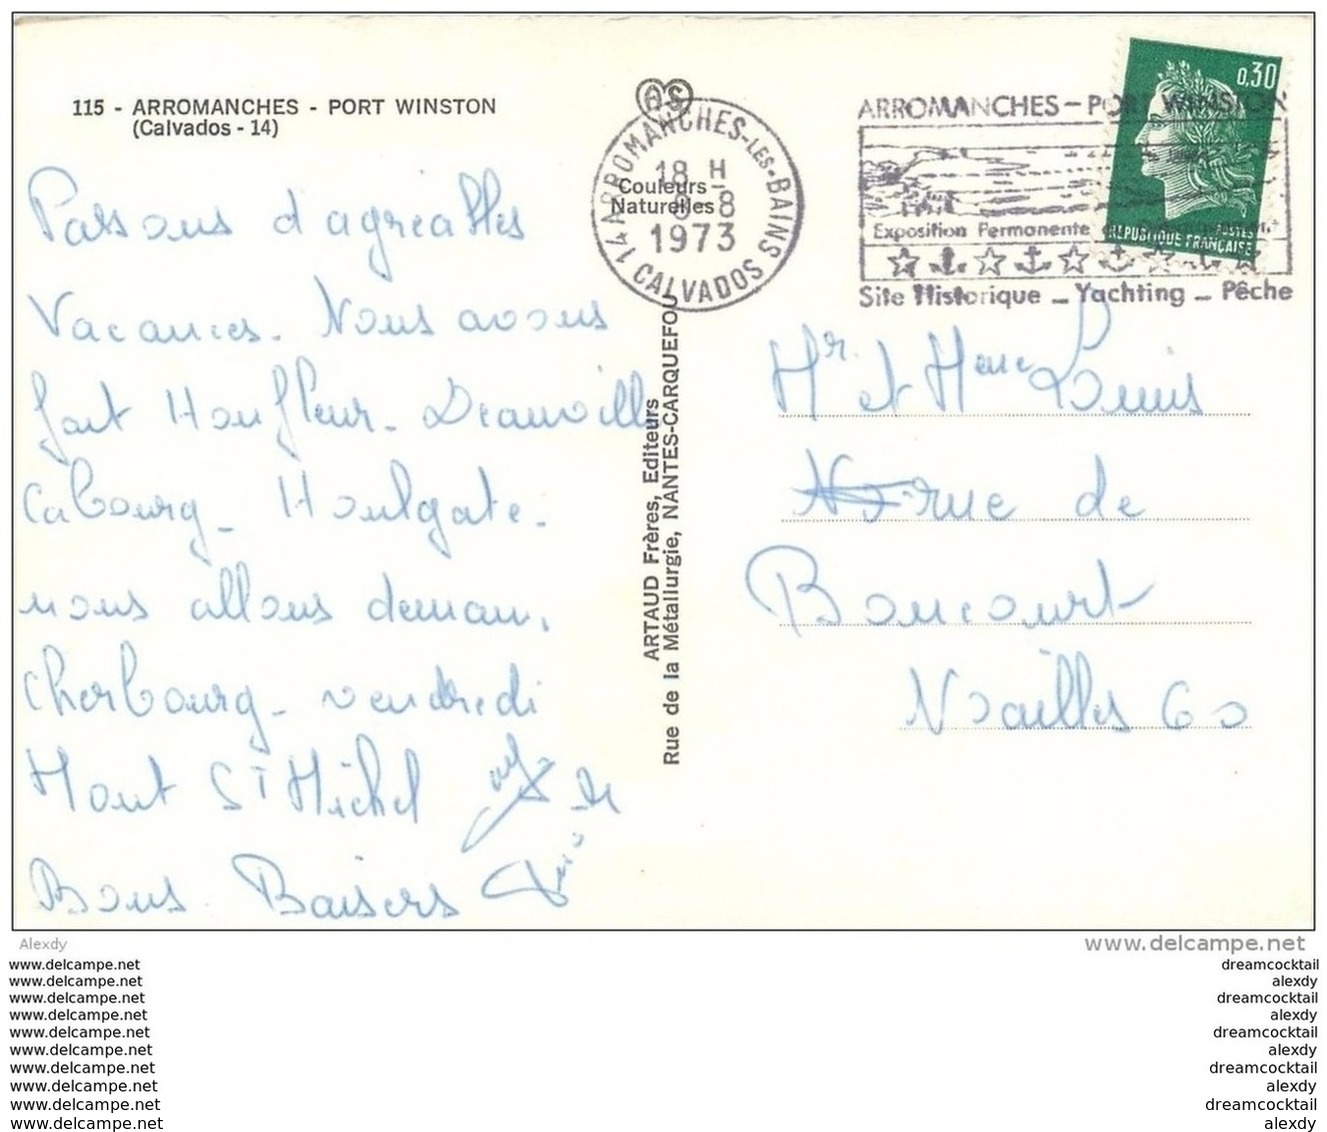 115 - ARROMANCHES - PORT WINSTON
(Calvados - 14)
Passons d'agréables
Vacances. Nous avons
fait Honfleur - Deauville
Cabourg - Houlgate -
nous allons demain,
Cherbourg - vendredi
Mont St Michel
Bons Baisers
AS
14 ARROMANCHES-LES-BAINS
18 H
-8
1973
CALVADOS
Couleurs
Naturelles
ARTAUD Frères, Editeurs
Rue de la Métallurgie, NANTES-CARQUEFOU
ARROMANCHES - PORT WINSTON
Exposition Permanente
Site Historique - Yachting - Pêche
0,30
RÉPUBLIQUE FRANÇAISE
POSTES
Mr et Mme Louis
rue de
Boncourt
Noailles 60
Alexdy
www.delcampe.net
www.delcampe.net
www.delcampe.net
www.delcampe.net
www.delcampe.net
www.delcampe.net
www.delcampe.net
www.delcampe.net
www.delcampe.net
www.delcampe.net
www.delcampe.net
dreamcocktail
alexdy
dreamcocktail
alexdy
dreamcocktail
alexdy
dreamcocktail
alexdy
dreamcocktail
alexdy